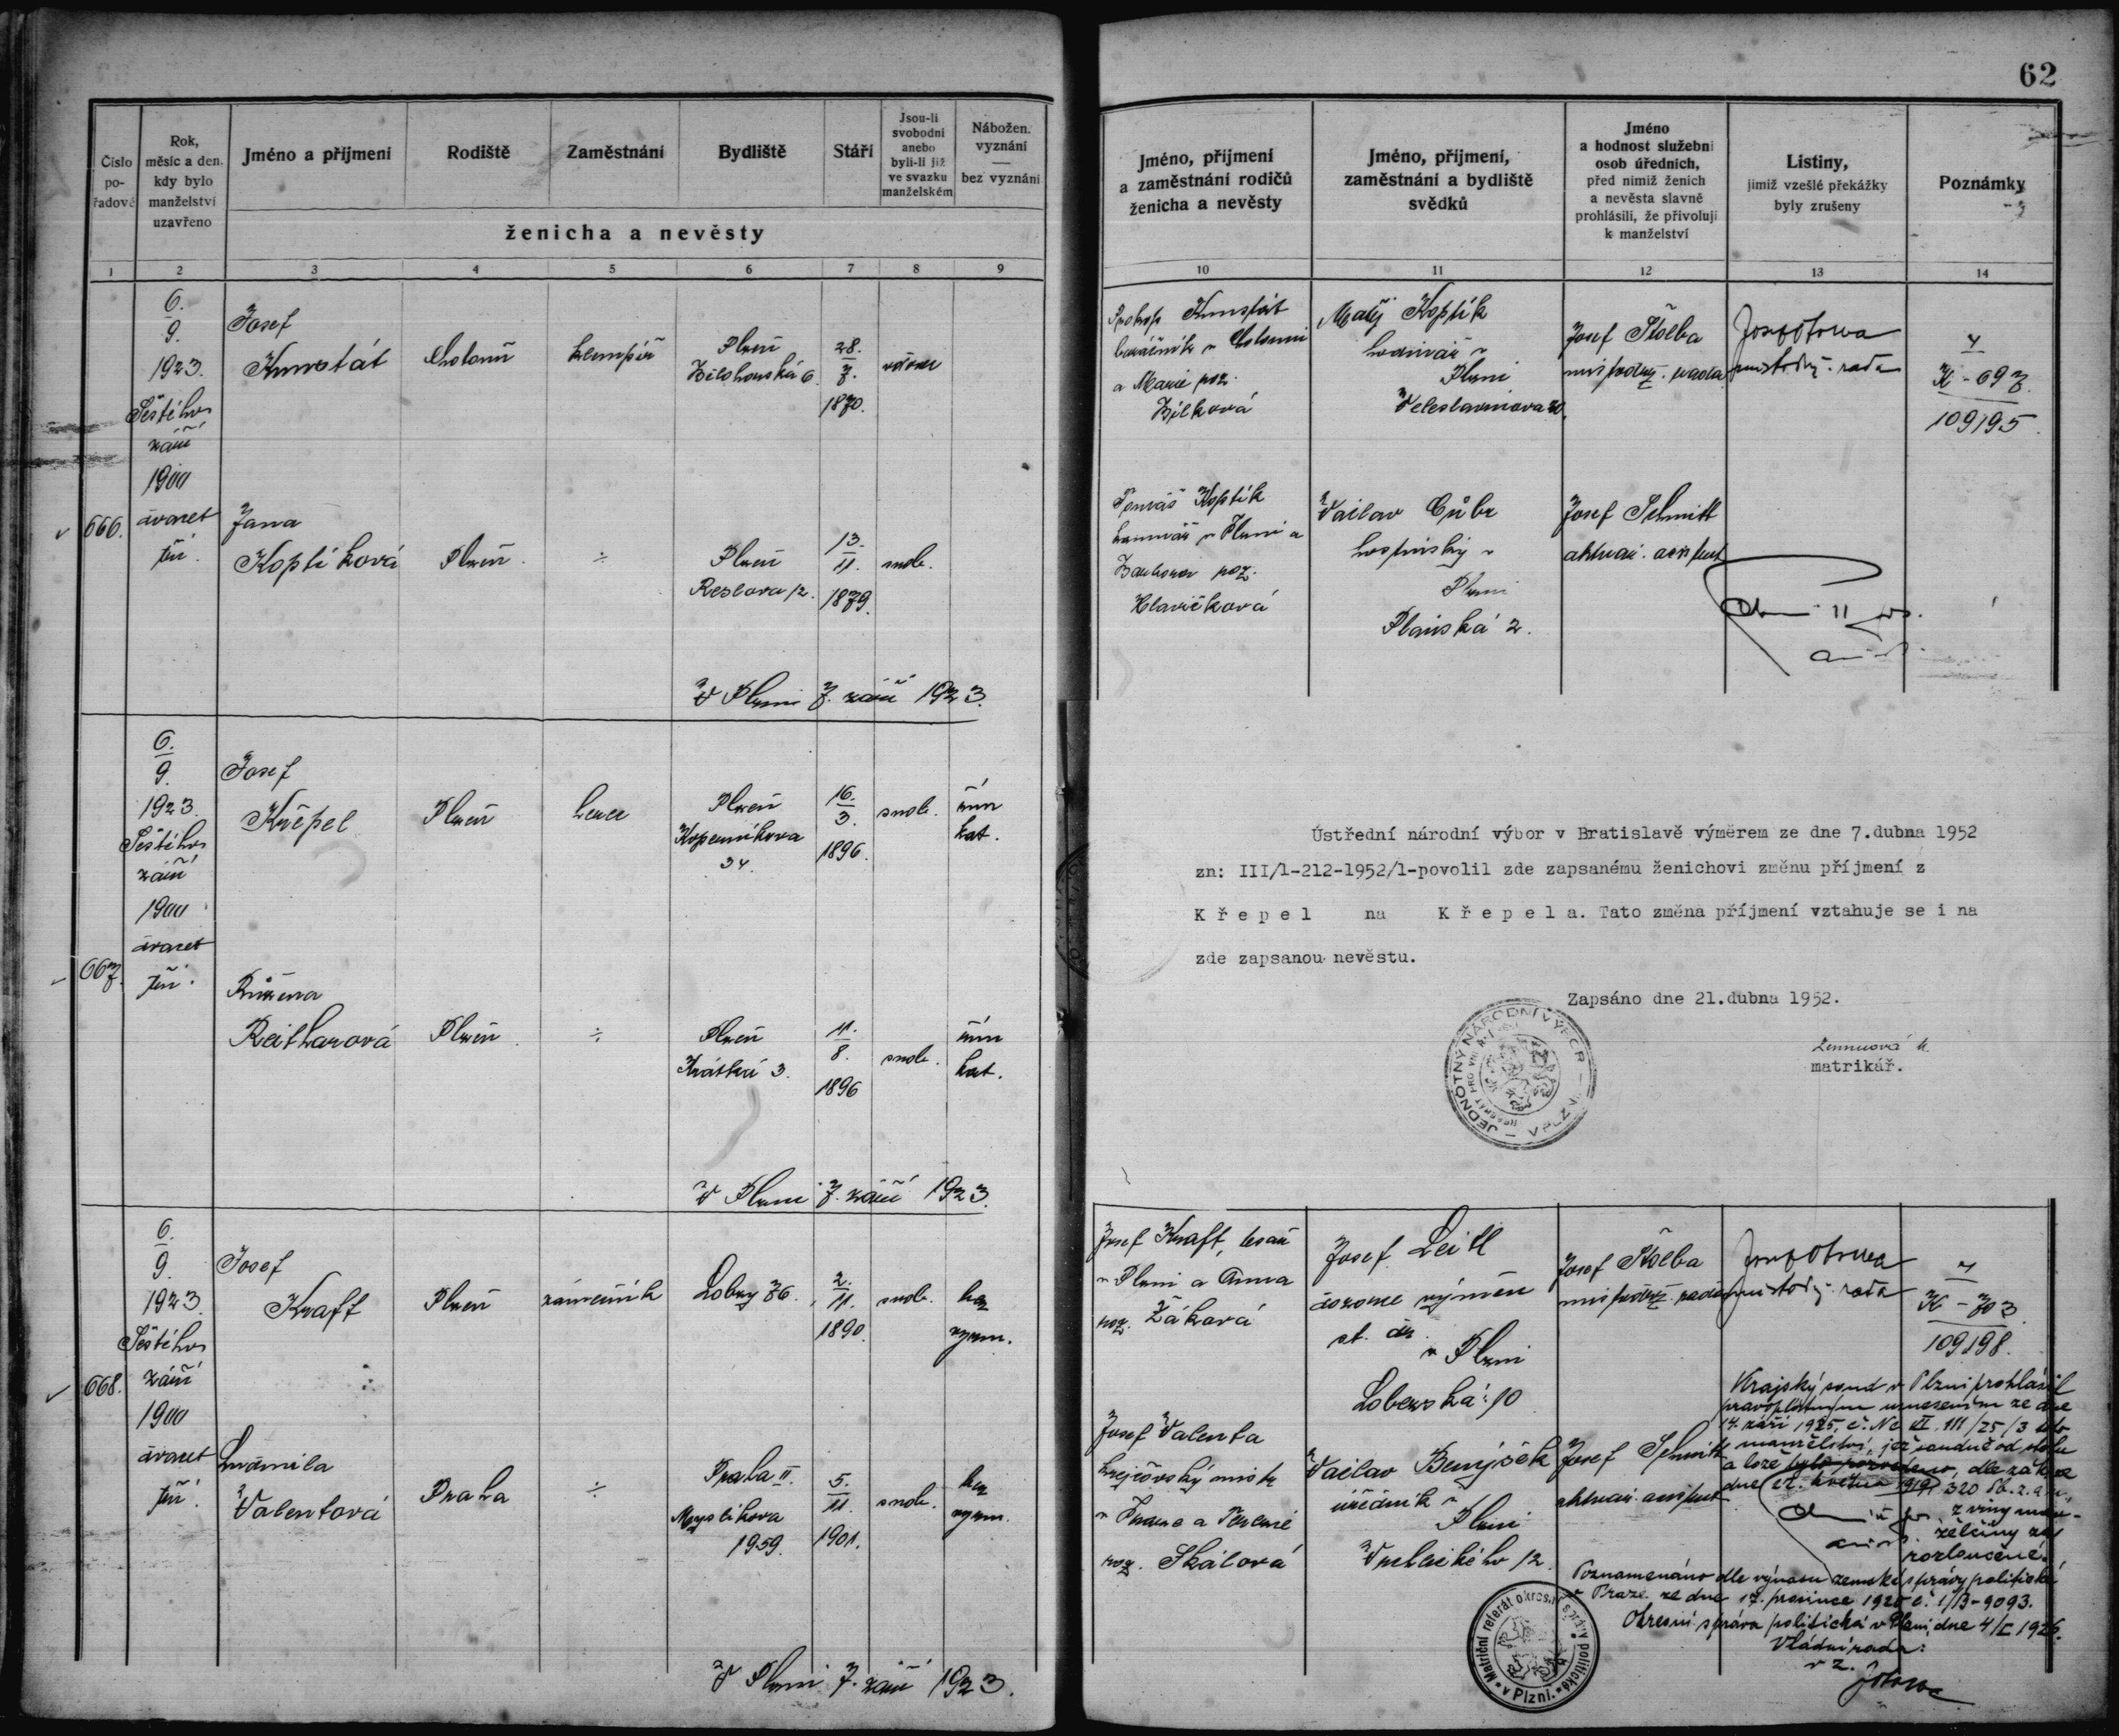 62
Číslo
po-
řadové
Rok,
měsíc a den,
kdy bylo
manželství
uzavřeno
Jméno a přijmení
Rodiště
Zaměstnání
Bydliště
Stáří
Jsou-li
svobodni
anebo
byli-li již
ve svazku
manželském
Nábožen.
vyznání
—
bez vyznání
ženicha a nevěsty
1 2 3 4 5 6 7 8 9
Jméno, přijmení
a zaměstnání rodičů
ženicha a nevěsty
Jméno, přijmení,
zaměstnání a bydliště
svědků
Jméno
a hodnost služební
osob úředních,
před nimiž ženich
a nevěsta slavně
prohlásili, že přivolují
k manželství
Listiny,
jimiž vzešlé překážky
byly zrušeny
Poznámky
10 11 12 13 14
666.
6.
9.
1923.
Šestého
září
1900
dvacet
tři.
Josef
Kunstát
Plzeň
Bělohorská 6.
28.
7.
1870.
Jana
Koptíková
Plzeň
÷
Plzeň
Reslova 12.
13.
11.
1879.
svob.
V Plzni 7. září 1923.
Prokop Kunstát
a Marie roz.
Bílková
Matěj Koptík
v
Plzni
Josef Štolba
4
K - 697
109195.
Tomáš Koptík
v Plzni a
Barbora roz.
Hlavičková
Václav Cůbr
hostinský v
Plzni
Plaňská 2.
Josef Schmitt
aktuár. assistent
667.
6.
9.
1923.
Šestého
září
1900
dvacet
tři.
Josef
Křepel
Plzeň
Plzeň
Koperníkova
34.
16.
3.
1896.
svob.
řím
kat.
Růžena
Reitharová
Plzeň
÷
Plzeň
Krátká 3.
11.
8.
1896
svob.
řím
kat.
V Plzni 7. září 1923.
Ústřední národní výbor v Bratislavě výměrem ze dne 7.dubna 1952
zn: III/1-212-1952/1-povolil zde zapsanému ženichovi změnu příjmení z
K ř e p e l na K ř e p e l a. Tato změna příjmení vztahuje se i na
zde zapsanou nevěstu.
Zapsáno dne 21.dubna 1952.
matrikář.
JEDNOTNÝ NÁRODNÍ VÝBOR — V PLZNI —
668.
6.
9.
1923.
Šestého
září
1900
dvacet
tři.
Josef
Kraft
Plzeň
zámečník
Lobzy 76.
2.
11.
1890.
svob.
bez
vyzn.
Ludmila
Valentová
Praha
÷
Praha II.
Myslíkova
1959.
5.
11.
1901.
svob.
bez
vyzn.
V Plzni 7. září 1923.
Josef Kraft, tesař
v Plzni a Anna
roz. Žáková
Josef Leitl
dozorce výměn
st. dr.
v Plzni
Lobezská 10
Josef Štolba
4
K - 703
109198.
Josef Valenta
krejčovský mistr
v Praze a Terezie
roz. Skálová
Václav Benýšek
úředník v
Plzni
Vrchlického 12.
Josef Schmitt
aktuár. assistent
Krajský soud v Plzni prohlásil
pravoplatným usnesením ze dne
14. září 1925, č. Nc VI. 111/25/3 toto
manželství, jež soudně od stolu
a lože bylo rozvedeno, dle zákona
dne 22. května 1919, 320 sb. z. a n.,
z viny man-
želčiny za
rozloučené.
Poznamenáno dle výnosu zemské správy politické
v Praze ze dne 17. prosince 1925 č. 1/B-9093.
Okresní správa politická v Plzni, dne 4/I 1926.
Vládní rada:
v z.
Matriční referát okresní správy politické v Plzni.